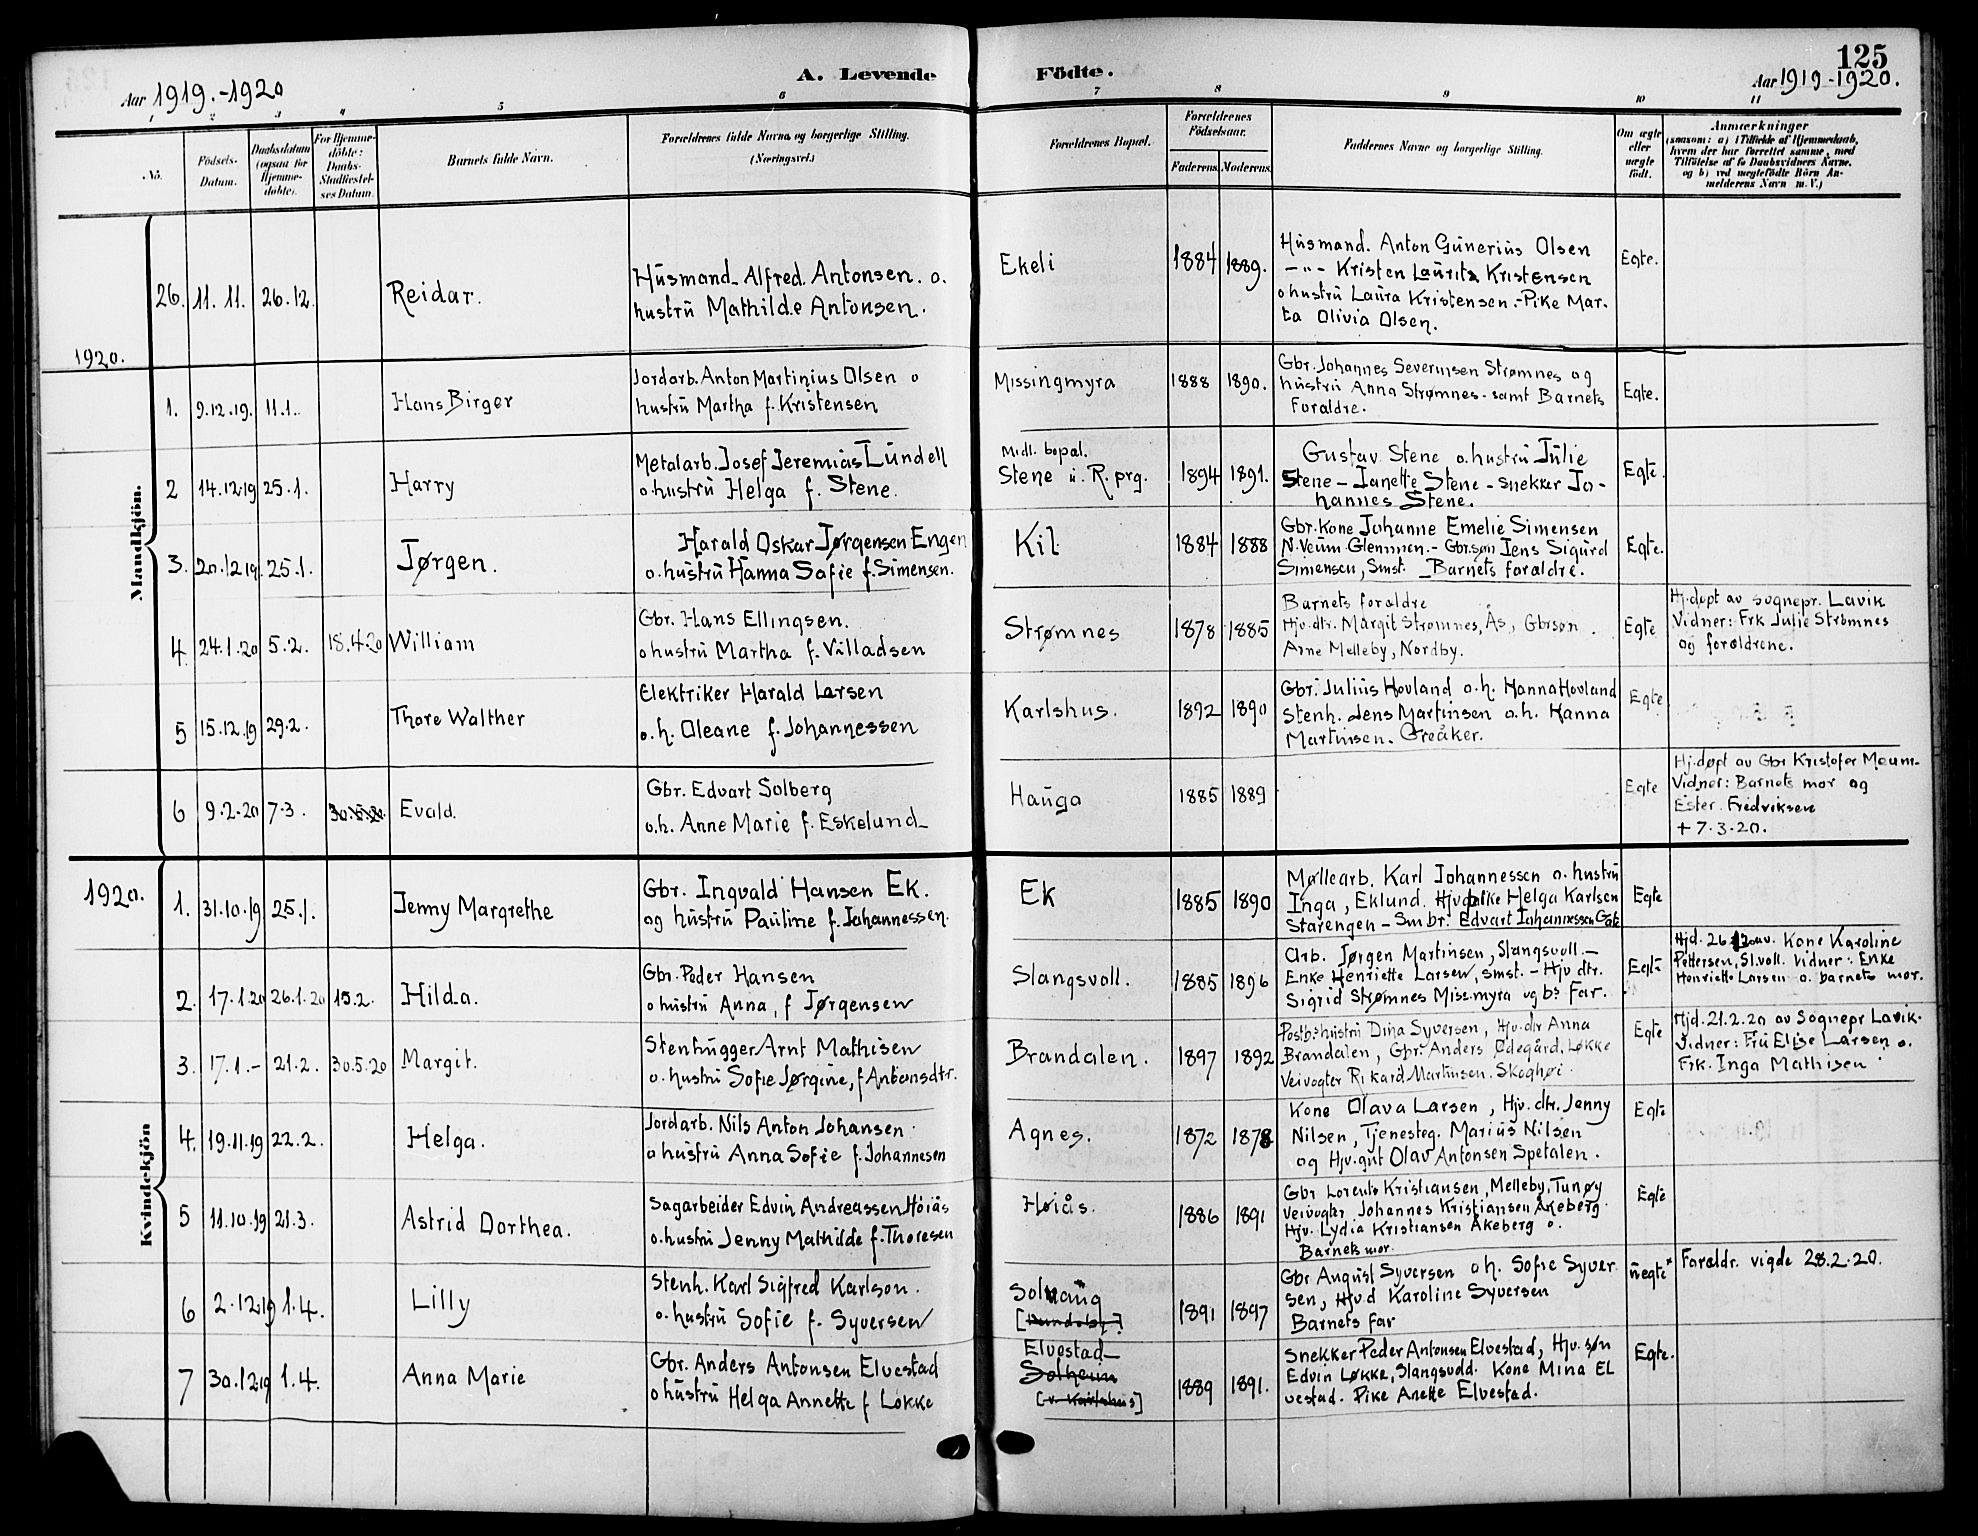 125
Aar 1919.-1920
A. Levende
Födte.
Aar 1919-1920.
1 2 3 4 5 6 7 8 9 10 11
No.
Födsels-
Datum.
Daabsdatum
(ogsaa for
Hjemme-
döbte).
For Hjemme-
döbte:
Daabs-
Stadfæstel-
ses Datum.
Barnets fulde Navn.
Forældrenes fulde Navne og borgerlige Stilling.
(Næringsvei.)
Forældrenes Bopæl.
Forældrenes
Födselsaar.
Faderens.
Moderens.
Faddernes Navne og borgerlige Stilling.
Om ægte
eller
uægte
födt.
Anmærkninger
(saasom: a) i Tilfælde af Hjemmedaab,
hvem der har forrettet samme, med
Tilföielse af to Daabsvidners Navne.
og b) ved uægtefödte Börn An-
melderens Navn m. V.)
Mandkjön.
26. 11. 11. 26.12. Reidar.
Husmand Alfred Antonsen. o.
hustru Mathilde Antonsen.
Ekeli 1884 1889.
Husmand. Anton Gunerius Olsen
-"- Kristen Laurits Kristensen
o hustru Laura Kristensen.- Pike Mar-
ta Olivia Olsen.
Egte.
1920.
1. 9.12.19. 11.1. Hans Birger
Jordarb. Anton Martinius Olsen o
hustru Martha f. Kristensen
Missingmyra 1888 1890.
Gbr. Johannes Severinsen Strømnes og
hustru Anna Strømnes - samt Barnets
Foraldre.
Egte.
2 14.12.19 25.1. Harry
Metalarb. Josef Jeremias Lundell
o. hustru Helga f. Stene.
Midl. bopæl.
Stene i. R. prg. 1894 1891.
Gustav Stene o. hustru Julie
Stene - Janette Stene - snekker Jo-
hannes Stene.
Egte.
3. 20.12.19. 25.1. Jørgen.
Harald Oskar Jørgensen Engen
o. hustru Hanna Sofie f. Simensen.
Kil 1884 1888
Gbr. kone Johanne Emelie Simensen
N. Veum Glemmen.- Gbr.søn Jens Sigurd
Simensen, Smst. _ Barnets foraldre.
Egte.
4. 24.1.20 5.2. 18.4.20 William
Gbr. Hans Ellingsen.
o hustru Martha f. Villadsen
Strømnes 1878 1885
Barnets forældre
Hjv. dtr. Margit Strømnes, Ås, Gbrsøn.
Arne Melleby, Nordby.
Egte
Hj.døpt av sognepr. Lavik
Vidner: Frk Julie Strømnes
og foraldrene.
5 15.12.19 29.2. Thore Walther
Elektriker Harald Larsen
o. h. Oleane f. Johannessen
Karlshus. 1892 1890
Gbr. Julius Hovland o. h. Hanna Hovland
Stenh. Jens Martinsen o. h. Hanna
Martinsen. Greåker.
Egte
6 9.2.20 7.3. Evald.
Gbr. Edvart Solberg
o.h. Anne Marie f. Eskelund
Hauga 1885 1889
Egte
Hj.døpt av Gbr Kristofer Meum-
Vidner: Barnets mor og
Ester Fredriksen
+ 7.3.20.
Kvindekjön
1920.
1. 31.10.19 25.1. Jenny Margrethe
Gbr. Ingvald Hansen Ek.
og hustru Pauline f. Johannessen.
Ek 1885 1890
Møllearb. Karl Johannessen o. hustru
Inga, Eklund. Hjv. pike Helga Karlsen
Starengen - Smbr. Edvart Johannessen
Egte
2. 17.1.20 26.1.20 15.2. Hilda.
Gbr. Peder Hansen
o hustru Anna, f Jørgensen
Slangsvoll. 1885 1896
Arb. Jørgen Martinsen, Slangsvoll.-
Enke Henriette Larsen, smst. - Hjv dtr.
Sigrid Strømnes Miss.myra og bs Far.
Egte
Hjd. 26 av. Kone Karoline
Pettersen, Sl.voll. Vidner: Enke
Henriette Larsen o. barnets mor.
3. 17.1.- 21.2. 30.5.20 Margit.
Stenhugger Arnt Mathisen
o. hustru Sofie Jørgine, f Antonsdtr.
Brandalen. 1897 1892
Postb. hustru Dina Syversen, Hjv. dtr Anna
Brandalen, Gbr. Anders Ødegård. Løkke
Veivogter Rikard Martinsen. Skoghøi.
Egte
Hjd. 21.2.20 av Sognepr Lavik.
Vidner: Fru Elise Larsen o.
Frk. Inga Mathisen
4. 19.11.19 22.2. Helga.
Jordarb. Nils Anton Johansen.
o hustru Anna Sofie f. Johannesen
Agnes. 1872 1878
Kone Olava Larsen, Hjv. dtr. Jenny
Nilsen, Tjenesteg. Marius Nilsen
og Hjv. gut Olav Antonsen Spetalen.
Egte
5 11.10.19 21.3. Astrid Dorthea.
Sagarbeider Edvin Andreassen Høiås
o. hustru Jenny Mathilde f. Thoresen
Høiås. 1886 1891
Gbr Lorents Kristiansen, Melleby, Tunøy
Veivogter Johannes Kristiansen Åkeberg.
Hjv. Lydia Kristiansen Åkeberg o.
Barnets mor.
Egte
6 2.12.19 1.4. Lilly
Stenh. Karl Sigfred Karlson.
o. hustru Sofie f. Syversen
Solhaug 1891 1897
Gbr August Syversen o h. Sofie Syver
sen, Hjv.d Karoline Syversen
Barnets far
uegte*
Foraldr. vigde 28.2.20.
7 30.12.19 1.4. Anna Marie
Gbr. Anders Antonsen Elvestad
o hustru Helga Annette f Løkke
Elvestad
Solheim
[v. Karlshus]
1889 1891.
Snekker Peder Antonsen Elvestad, Hjv. søn
Edvin Løkke, Slangsvold. Kone Mina El
vestad. Pike Anette Elvestad.
Egte.